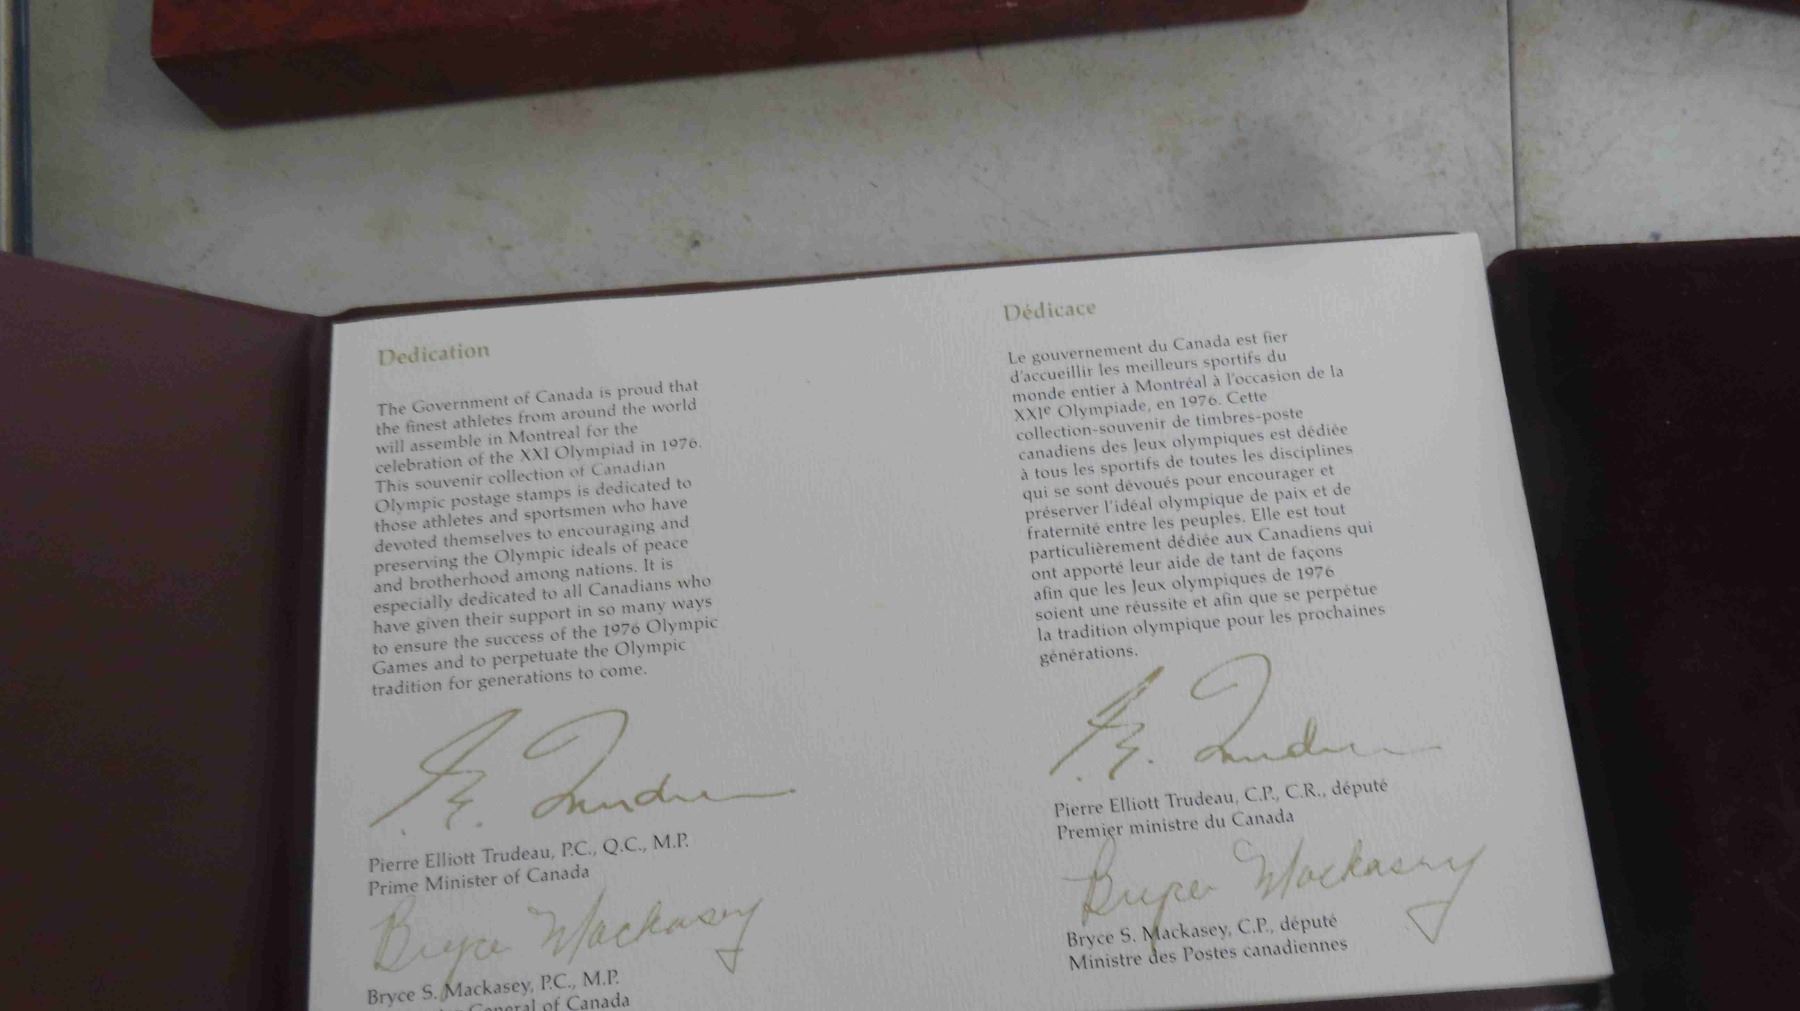 Dedication
The Government of Canada is proud that
the finest athletes from around the world
will assemble in Montreal for the
celebration of the XXI Olympiad in 1976.
This souvenir collection of Canadian
Olympic postage stamps is dedicated to
those athletes and sportsmen who have
devoted themselves to encouraging and
preserving the Olympic ideals of peace
and brotherhood among nations. It is
especially dedicated to all Canadians who
have given their support in so many ways
to ensure the success of the 1976 Olympic
Games and to perpetuate the Olympic
tradition for generations to come.
P. E. Trudeau
Pierre Elliott Trudeau, P.C., Q.C., M.P.
Prime Minister of Canada
Bryce Mackasey
Bryce S. Mackasey, P.C., M.P.
General of Canada
Dédicace
Le gouvernement du Canada est fier
d'accueillir les meilleurs sportifs du
monde entier à Montréal à l'occasion de la
XXIe Olympiade, en 1976. Cette
collection-souvenir de timbres-poste
canadiens des Jeux olympiques est dédiée
à tous les sportifs de toutes les disciplines
qui se sont dévoués pour encourager et
préserver l'idéal olympique de paix et de
fraternité entre les peuples. Elle est tout
particulièrement dédiée aux Canadiens qui
ont apporté leur aide de tant de façons
afin que les Jeux olympiques de 1976
soient une réussite et afin que se perpétue
la tradition olympique pour les prochaines
générations.
P. E. Trudeau
Pierre Elliott Trudeau, C.P., C.R., député
Premier ministre du Canada
Bryce Mackasey
Bryce S. Mackasey, C.P., député
Ministre des Postes canadiennes